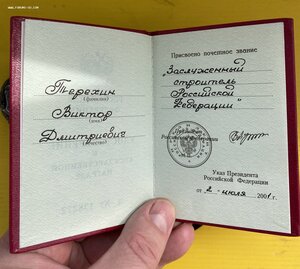 Терехин
(фамилия)
Виктор
(имя)
Дмитриевич
(отчество)
Присвоено почетное звание
„Заслуженный
строитель
Российской
Федерации"
Президент
Российской Федерации
Указ Президента
Российской Федерации
от 2 июля 2001 г.